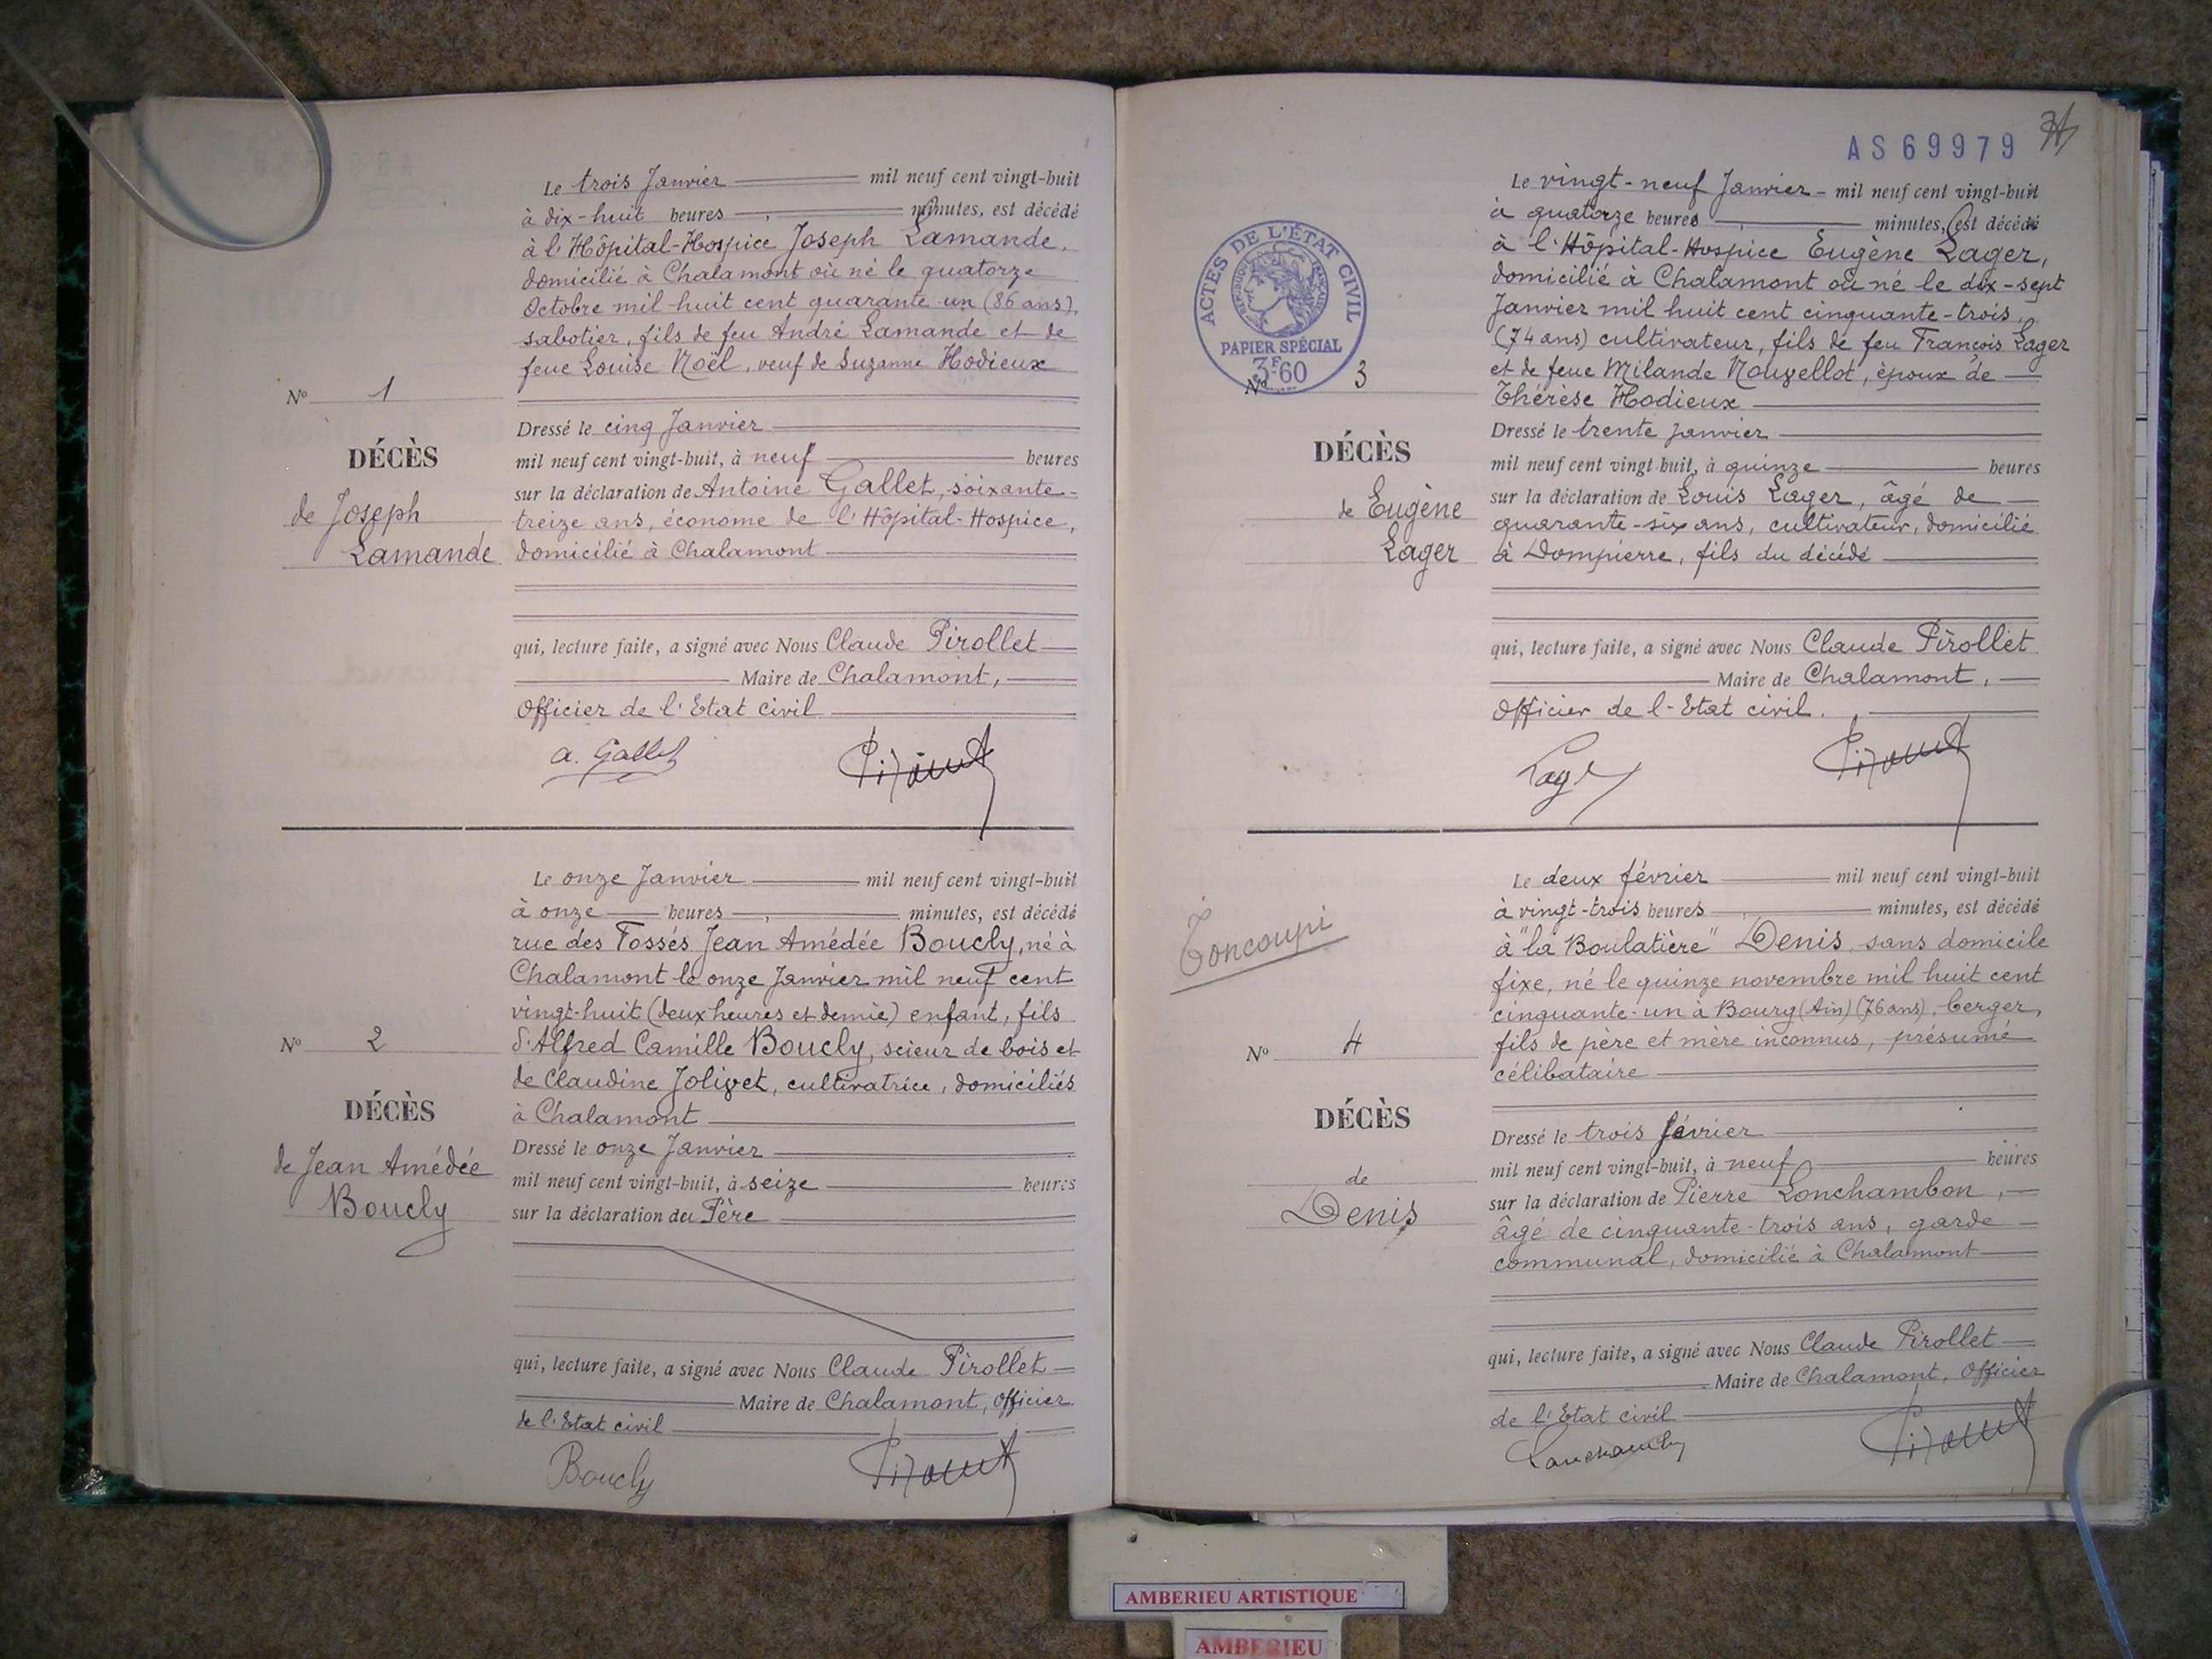 Le trois Janvier mil neuf cent vingt-huit
à dix-huit heures minutes, est décédé
à l'Hôpital-Hospice Joseph Lamande,
domicilié à Chalamont où né le quatorze
Octobre mil huit cent quarante-un (86 ans),
sabotier, fils de feu André Lamande et de
feue Louise Noël, veuf de Suzanne Hodieux
N° 1
DÉCÈS
de Joseph
Lamande
Dressé le cinq Janvier
mil neuf cent vingt-huit, à neuf heures
sur la déclaration de Antoine Gallet, soixante-
treize ans, économe de l'Hôpital-Hospice,
domicilié à Chalamont
qui, lecture faite, a signé avec Nous Claude Pirollet
Maire de Chalamont,
Officier de l'Etat civil
a. Gallet
Le onze Janvier mil neuf cent vingt-huit
à onze heures minutes, est décédé
rue des Fossés Jean Amédée Boucly, né à
Chalamont le onze Janvier mil neuf cent
vingt-huit (deux heures et demie) enfant, fils
d'Alfred Camille Boucly, scieur de bois et
de Claudine Jolivet, cultivatrice, domiciliés
à Chalamont
N° 2
DÉCÈS
de Jean Amédée
Boucly
Dressé le onze Janvier
mil neuf cent vingt-huit, à seize heures
sur la déclaration du Père
qui, lecture faite, a signé avec Nous Claude Pirollet
Maire de Chalamont, Officier
de l'Etat civil
Boucly
AS69979
ACTES DE L'ÉTAT CIVIL
RÉPUBLIQUE FRANÇAISE
PAPIER SPÉCIAL
3F60
Le vingt-neuf Janvier mil neuf cent vingt-huit
à quatorze heures minutes, est décédé
à l'Hôpital-Hospice Eugène Lager,
domicilié à Chalamont où né le dix-sept
Janvier mil huit cent cinquante-trois,
(74 ans) cultivateur, fils de feu François Lager
et de feue Milande Nouvellot, époux de
Thérèse Hodieux
N° 3
DÉCÈS
de Eugène
Lager
Dressé le trente janvier
mil neuf cent vingt-huit, à quinze heures
sur la déclaration de Louis Lager, âgé de
quarante-six ans, cultivateur, domicilié
à Dompierre, fils du décédé
qui, lecture faite, a signé avec Nous Claude Pirollet
Maire de Chalamont,
Officier de l'Etat civil.
Lager
Le deux février mil neuf cent vingt-huit
à vingt-trois heures minutes, est décédé
à "la Boulatière" Denis, sans domicile
fixe, né le quinze novembre mil huit cent
cinquante-un à Bourg (Ain) (76 ans), berger,
fils de père et mère inconnus, présumé
célibataire
Toncoupi
N° 4
DÉCÈS
de
Denis
Dressé le trois février
mil neuf cent vingt-huit, à neuf heures
sur la déclaration de Pierre Lonchambon,
âgé de cinquante-trois ans, garde
communal, domicilié à Chalamont
qui, lecture faite, a signé avec Nous Claude Pirollet
Maire de Chalamont, Officier
de l'Etat civil
AMBERIEU ARTISTIQUE
AMBERIEU